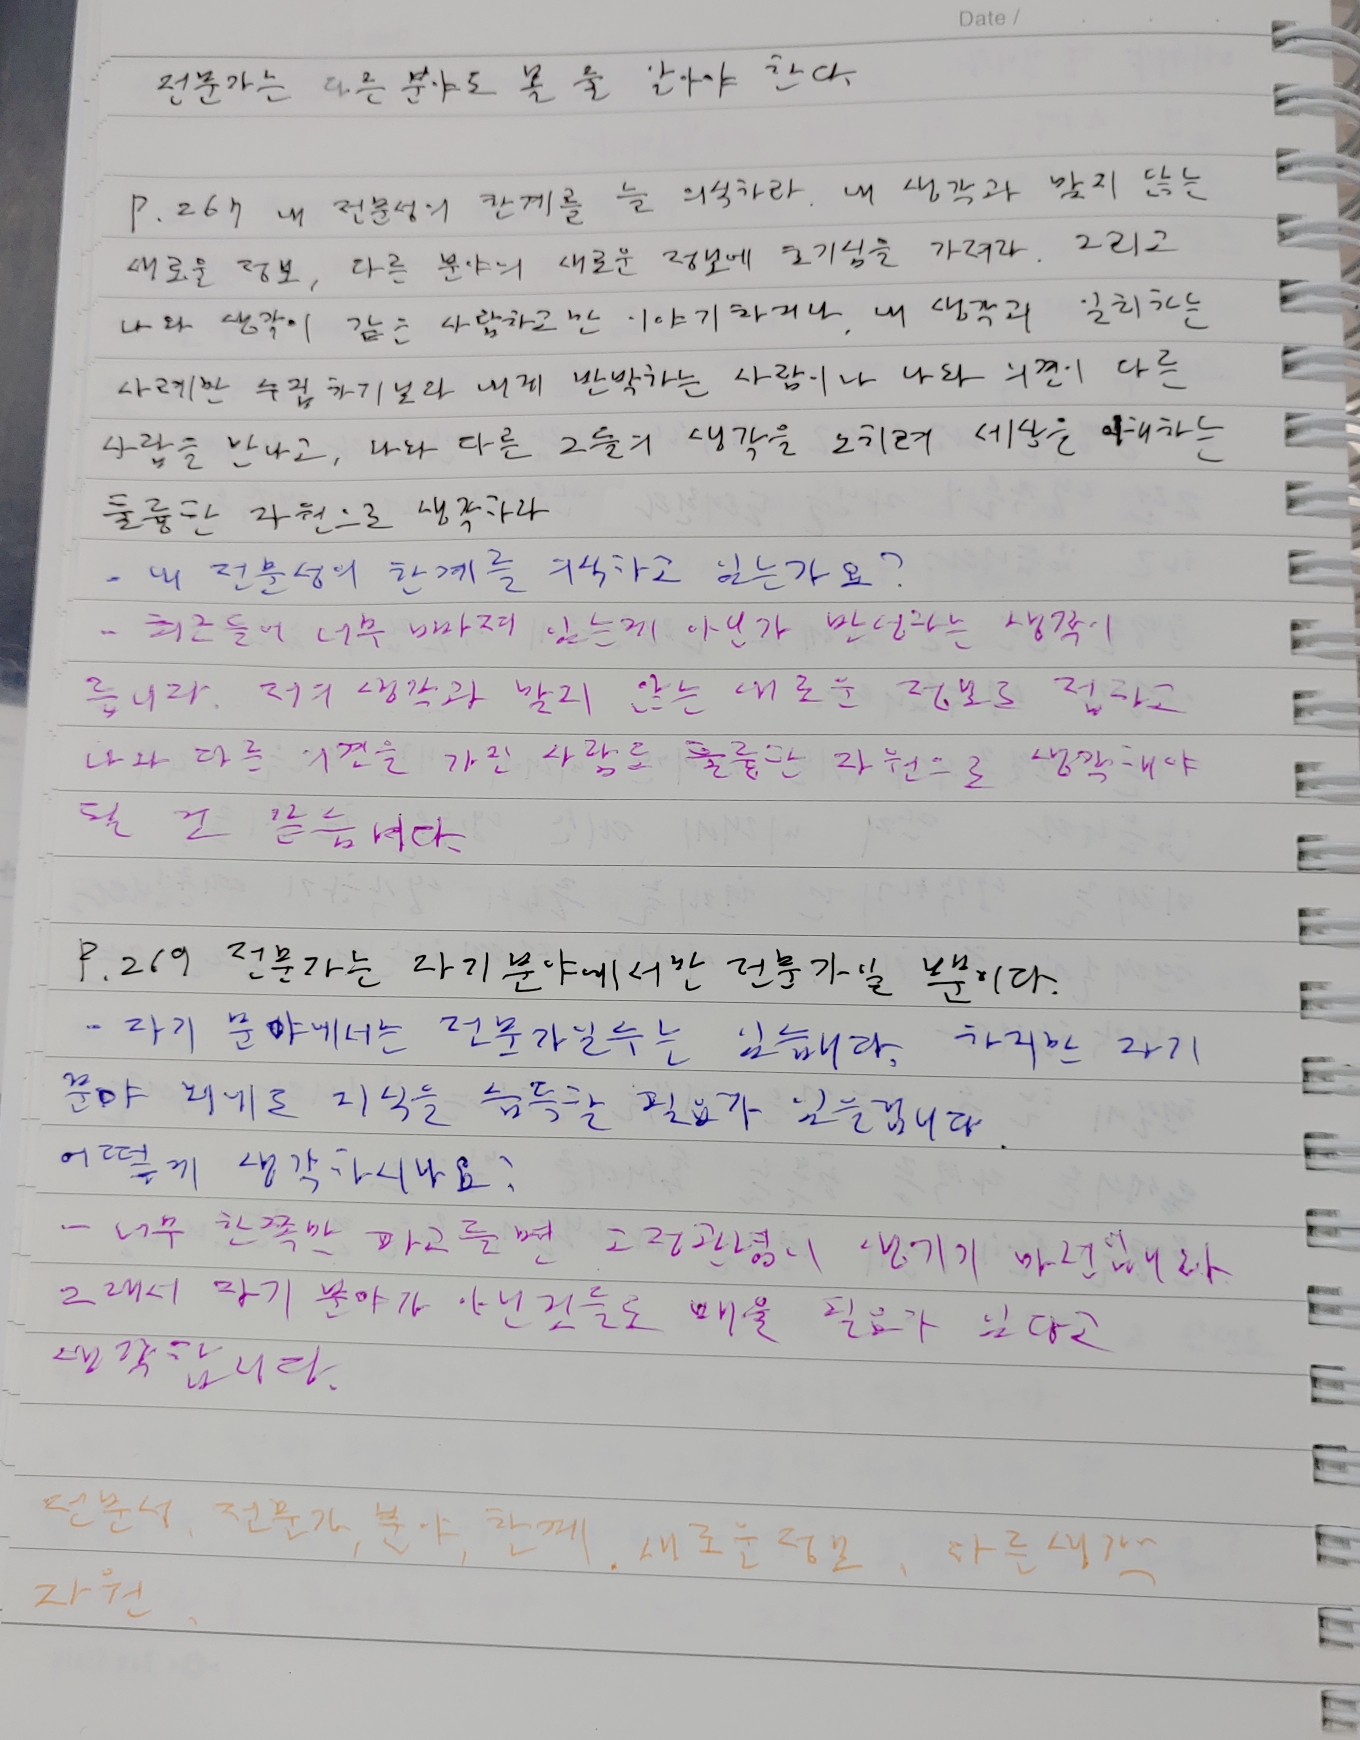 Date /
전문가는 다른 분야도 볼 줄 알아야 한다.
P. 267 내 전문성의 한계를 늘 의식하라. 내 생각과 맞지 않는
새로운 정보, 다른 분야의 새로운 정보에 호기심을 가져라. 그리고
나와 생각이 같은 사람하고만 이야기하거나, 내 생각과 일치하는
사례만 수집하기보다 내게 반박하는 사람이나 나와 의견이 다른
사람을 만나고, 나와 다른 그들의 생각을 오히려 세상을 이해하는
훌륭한 자원으로 생각하라
- 내 전문성의 한계를 의식하고 있는가요?
- 최근들어 너무 빠져 있는게 아닌가 반성하는 생각이
듭니다. 저의 생각과 맞지 않는 새로운 정보도 접하고
나와 다른 의견을 가진 사람도 훌륭한 자원으로 생각해야
될 것 같습니다.
P. 269 전문가는 자기분야에서만 전문가일 뿐이다.
- 자기 분야에서는 전문가일수는 있습니다. 하지만 자기
분야 외에도 지식을 습득할 필요가 있을겁니다.
어떻게 생각하시나요?
- 너무 한쪽만 파고들면 고정관념이 생기기 마련입니다.
그래서 자기 분야가 아닌것들도 배울 필요가 있다고
생각합니다.
전문성, 전문가, 분야, 한계, 새로운정보, 다른생각
자원,